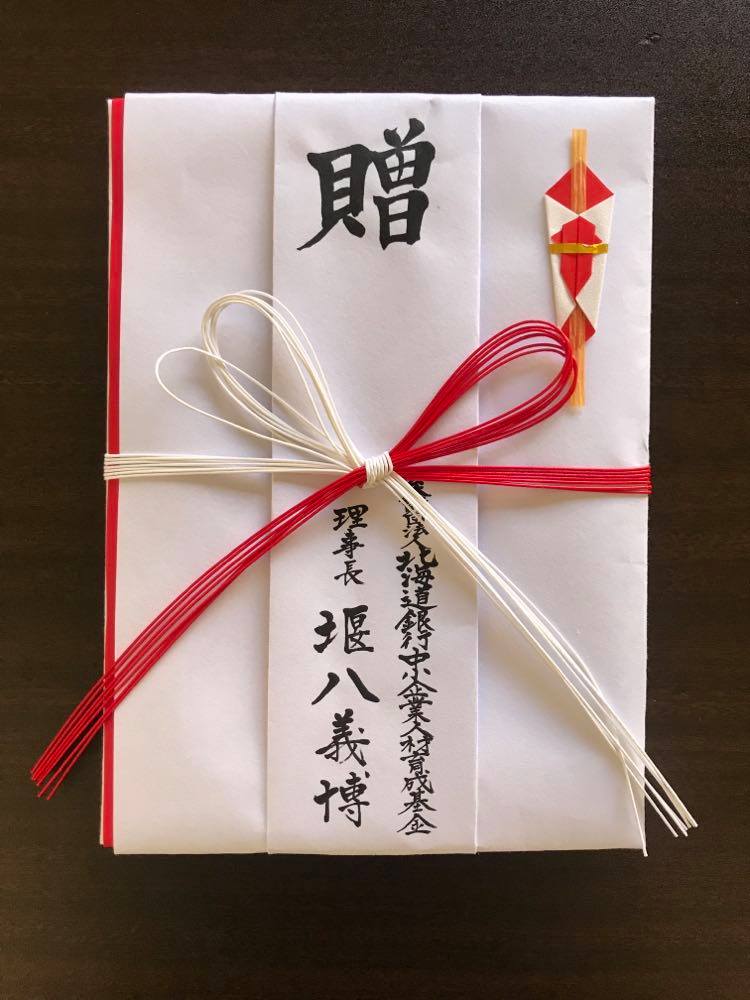 贈
法人北海道銀行中小企業人材育成基金
理事長 堰八義博